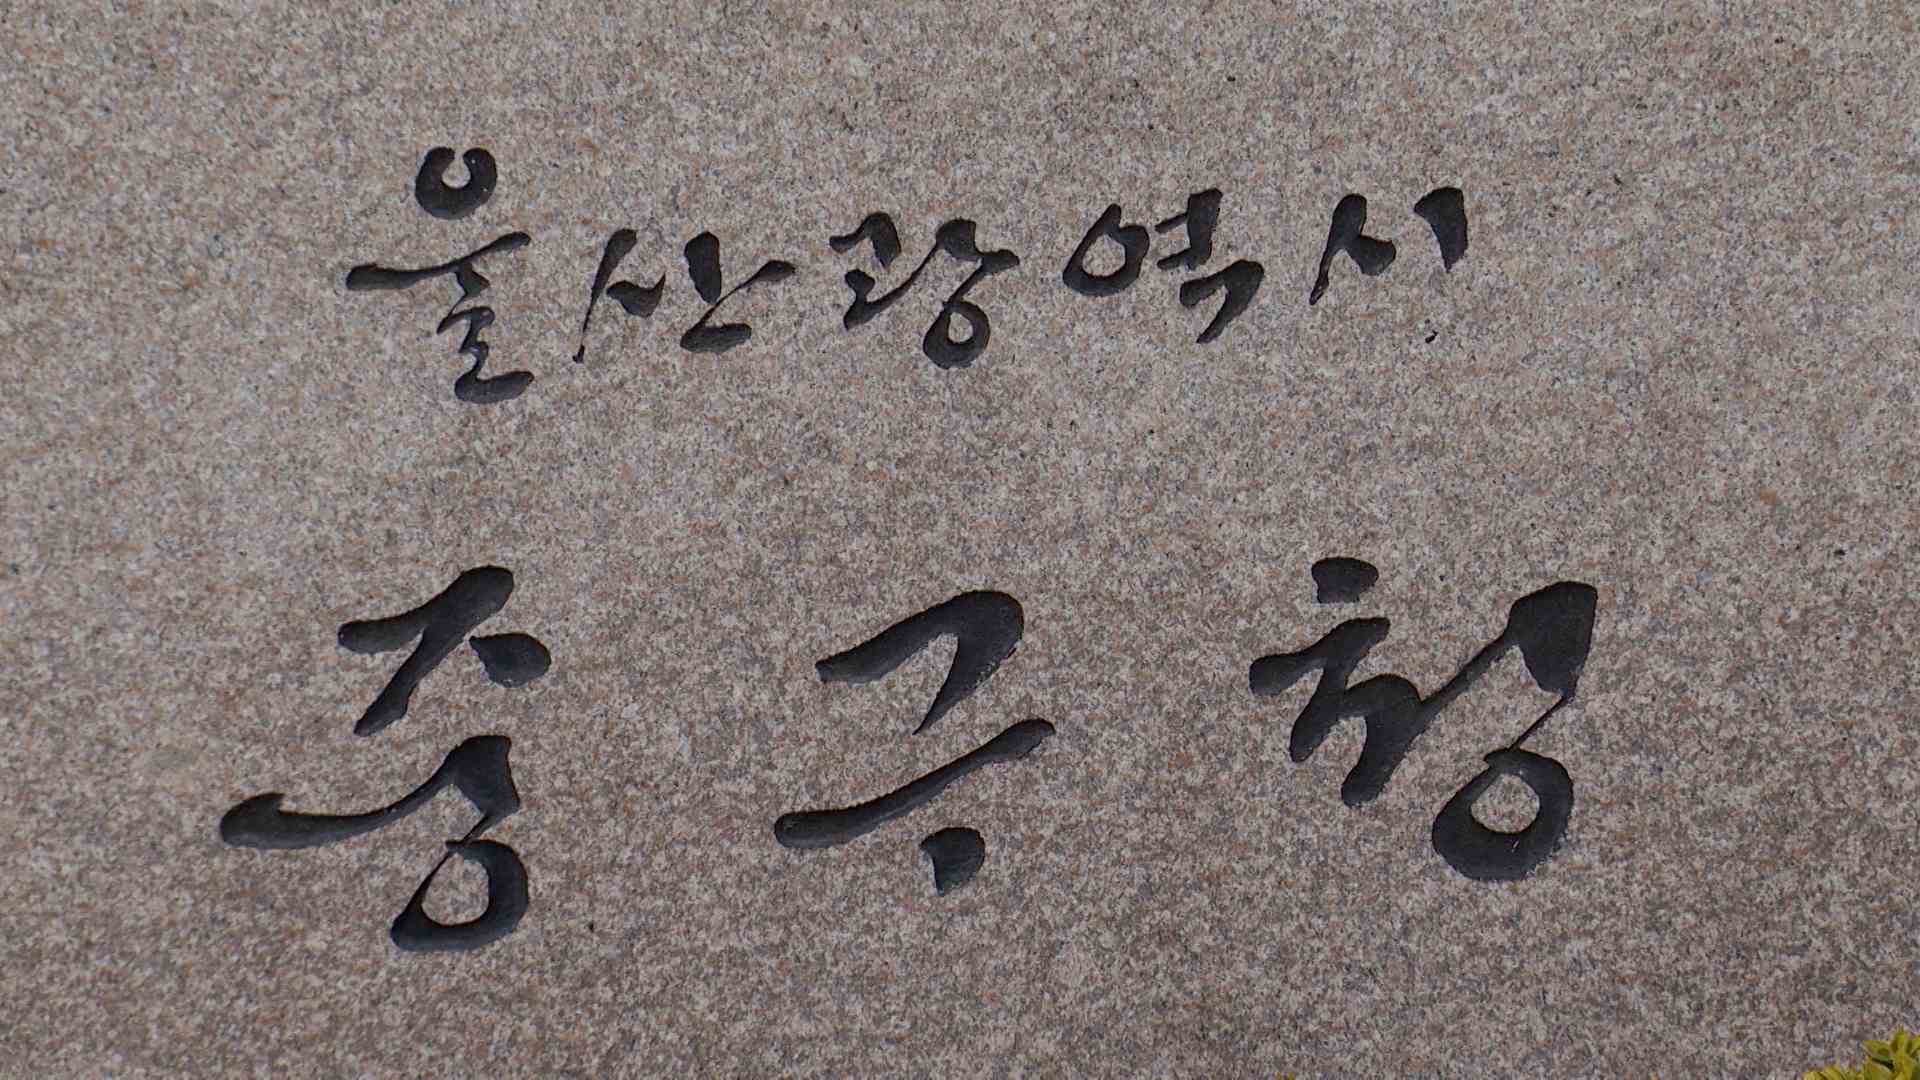 울산광역시
중구청